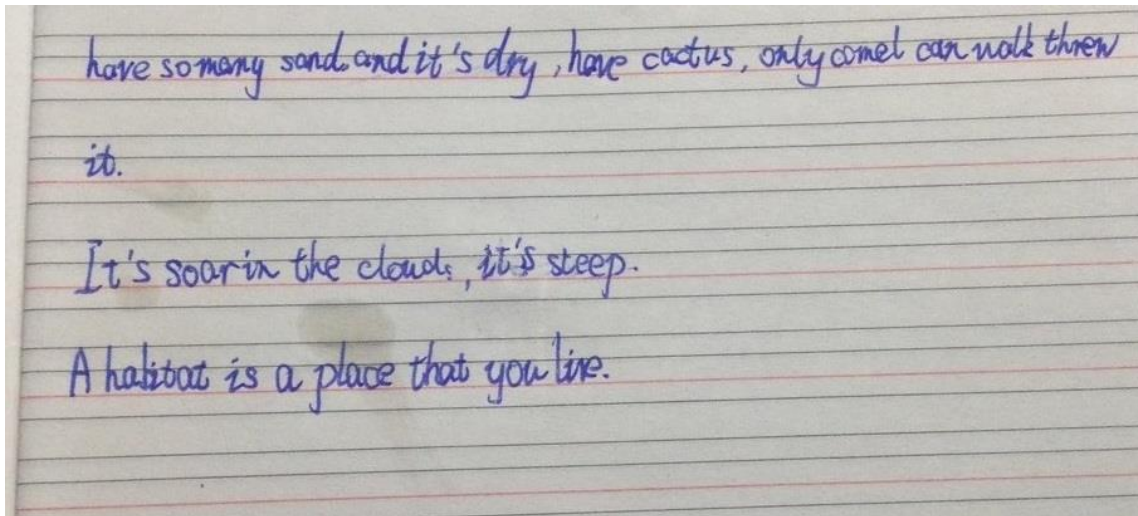 have so many sand. and it's dry, have cactus, only camel can walk threw
it.
It's soar in the clouds, it's steep.
A habitat is a place that you live.